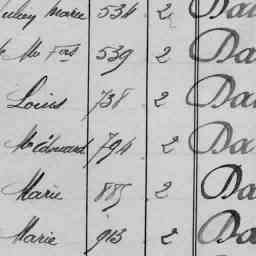 Marie 534 2 Da
Me Fois 539 2 Da
Louis 738 2 Da
Me édouard 794 2 Da
Marie 885 2 Da
Marie 913 2 Da